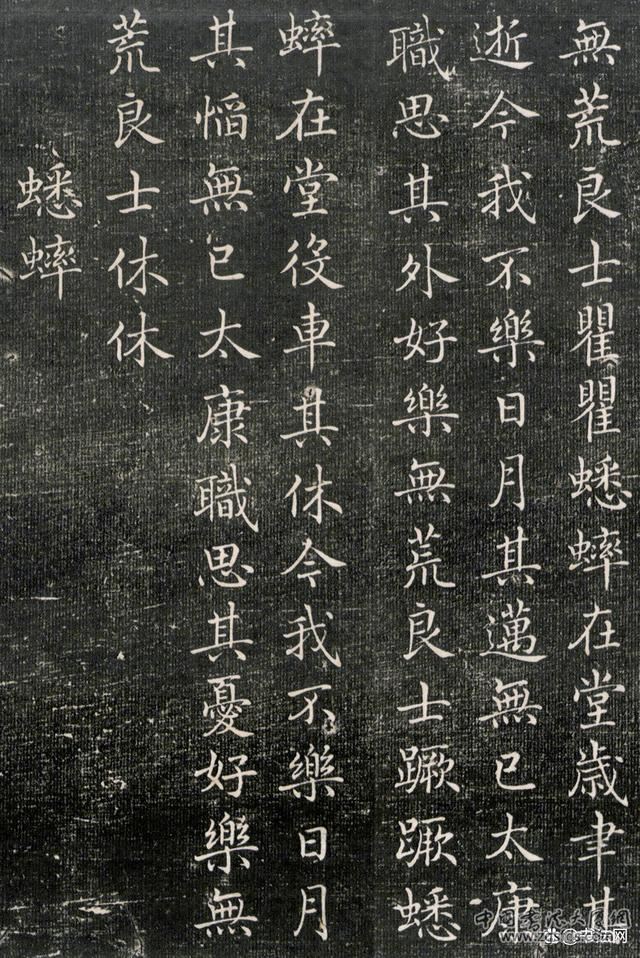 無荒良士瞿瞿蟋蟀在堂歲聿其
逝今我不樂日月其邁無已太康
職思其外好樂無荒良士蹶蹶蟋
蟀在堂役車其休今我不樂日月
其慆無已太康職思其憂好樂無
荒良士休休
蟋蟀